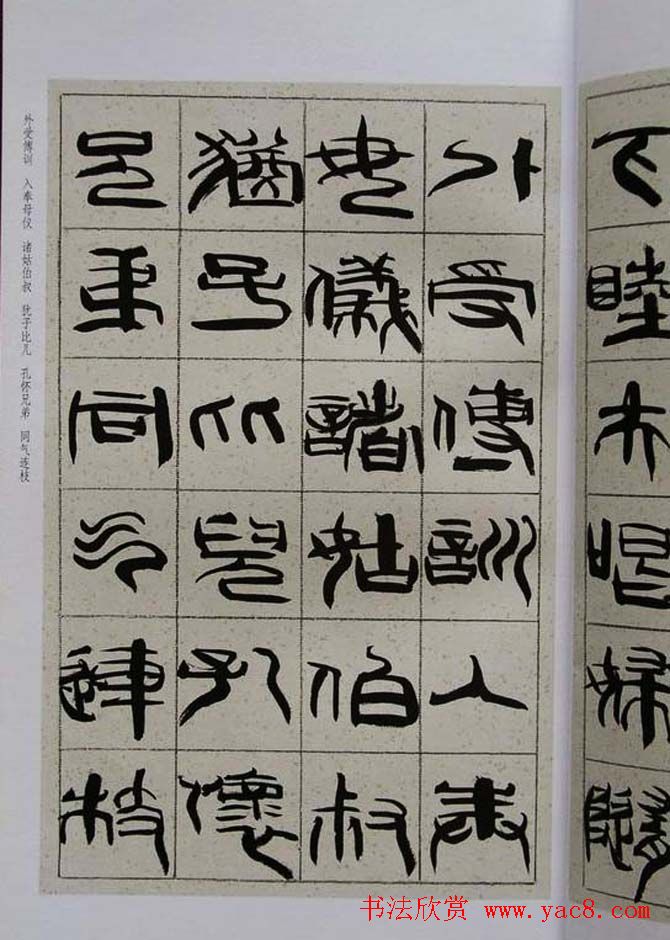 下
睦
夫
唱
婦
隨
外受傅訓入奉
母儀諸姑伯叔
猶子比兒孔懷
兄弟同气連枝
外受傅训 入奉母仪 诸姑伯叔 犹子比儿 孔怀兄弟 同气连枝
书法欣赏 www.yac8.com